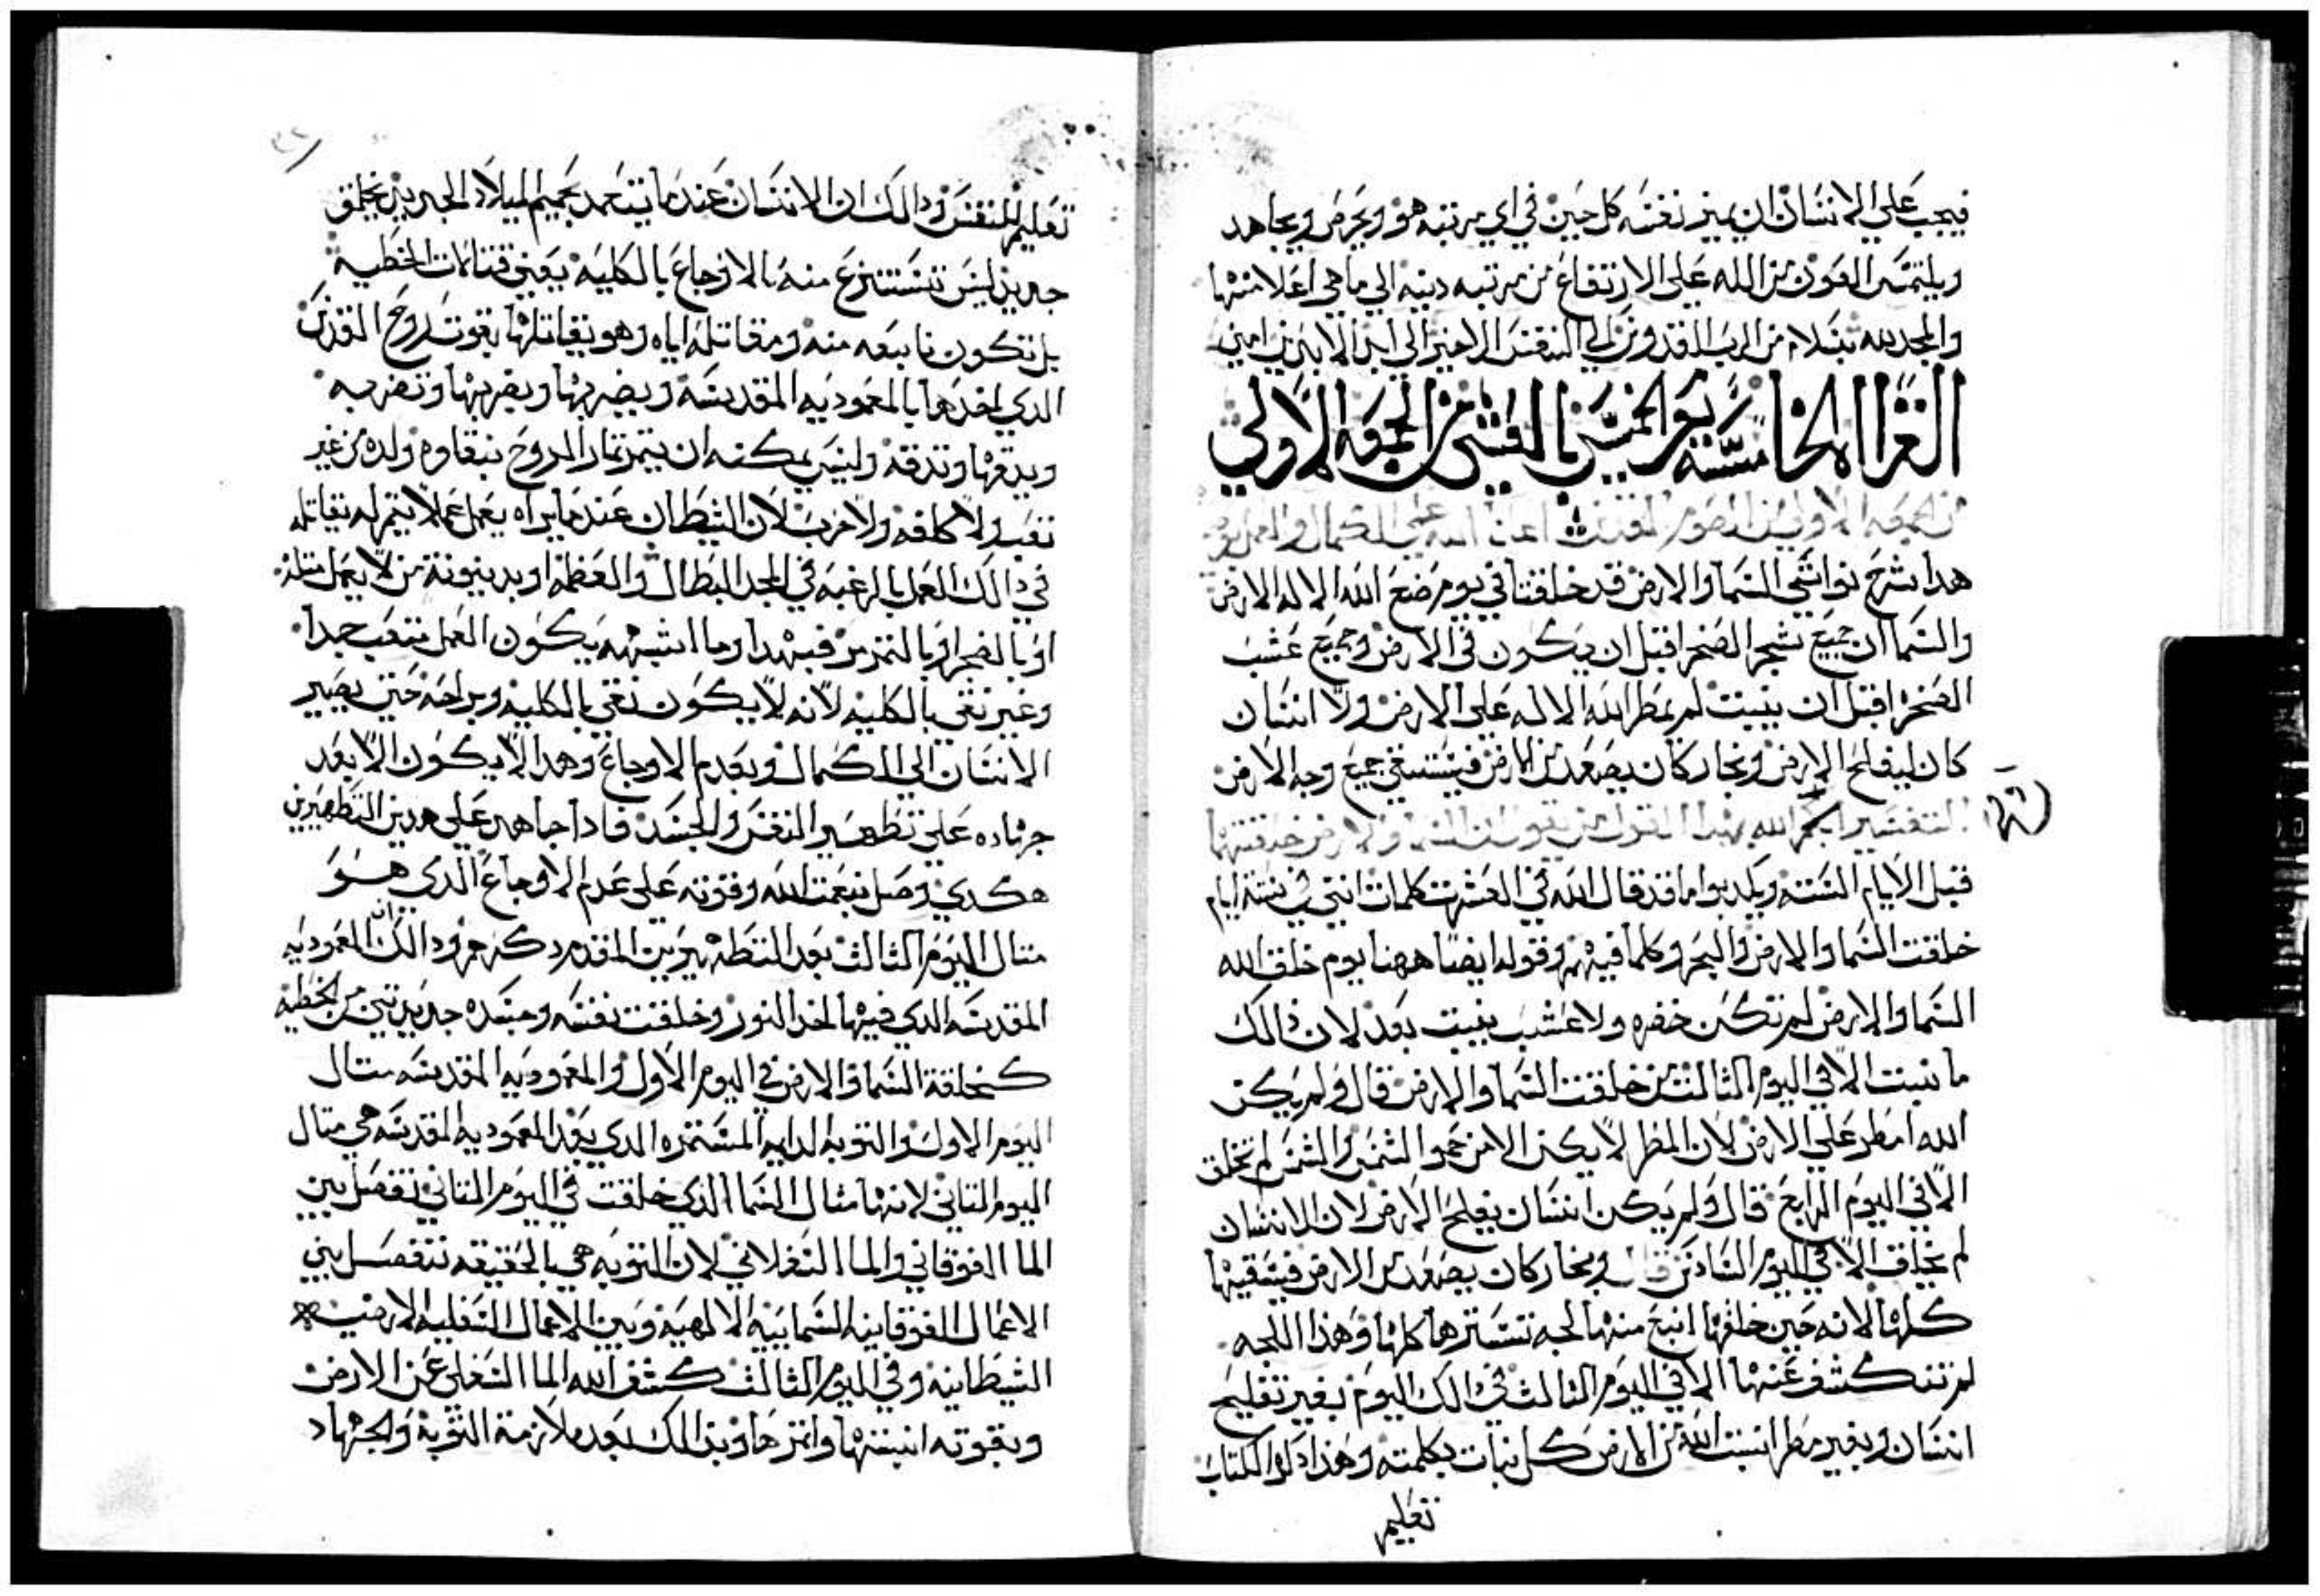 فيجب علي الانسان ان يميز نفسه كل حين في اي مرتبه هو ويحرص ويجاهد
ويلتمس العون من الله علي الارتفاع من مرتبه دنيه الي ما هي اعلا منها
والمجد لله تبلا من الرب المقدوس الي النفس الاخير الي ابد الابدين امين
القراه الخامسه يوم الخميس بالعشي من الجمعه الاولي
من الجمعه الاولي من الصوم المقدس اعاننا الله علي الكمال والعمل
هدا شرح نواشي السما والارض قد خلقتا في يوم صنع الله الاله الارض
والسما ان جميع شجر الصحرا قبل ان يكون في الارض وجميع عشب
الصحرا قبل ان ينبت لم يمطر الله الاله علي الارض ولا انسان
كان ليفلح الارض وبخار كان يصعد من الارض فيستسقي جميع وجه الارض
التفسير الله بهدا القول من يقول ان السما والارض خلقتهما
قبل الايام السته ويكدبوا ما قد قال الله في العشرت كلمات انني في سته ايام
خلقت السما والارض والبحر وكلما فيهم وقوله ايضا ههنا يوم خلق الله
السما والارض لم تكن خضره ولا عشب ينبت بعد لان دالك
ما نبت الا في اليوم الثالث من خلقت السما والارض قال ولم يكن
الله امطر علي الارض لان المطر لا يكن الا من حمو الشمس والشمس لم تخلق
الا في اليوم الرابع قال ولم يكن انسان يفلح الارض لان الانسان
لم يخلق الا في اليوم السادس قال وبخار كان يصعد من الارض فيسقيها
كلها لانه حين خلقها انبع منها لجه تسترها كلها وهذا اللجه
لم تنكشف عنها الا في اليوم الثالث في دالك اليوم بغير تفليح
انسان وبغير مطر انبت الله من الارض كل نبات بكلمته وهذا دلوا الكتاب
تعليم
تعليم للنفس ودالك ان الانسان عندما يتعمد بحميم الميلاد الجديد يخلق
جديد ليس تنتزع منه الاوجاع بالكليه يعني قتالات الخطيه
بل تكون تابعه منه ومقاتله اياه وهو يقاتلها بقوت روح القدس
الدي اخدها بالمعموديه المقدسه ويضربها ويضربها وتضربه
ويدقها وتدقه وليس يمكنه ان يتمر تمار الروح بنقاوه ولده من غير
تعب ولا كلفه ولا حرب لان الشيطان عندما يراه يعمل عملا يتمر له يقاتله
في دالك العمل بالرغبه في المجد البطال والعظمه او بدينونة من لا يعمل متله
او بالضجر او بالتمرمر فبهدا وما اشبهه يكون العمل متعب جدا
وغير نقي بالكليه لانه لا يكون نقي بالكليه وبراحه حتي يصير
الانسان الي الكمال وبعدم الاوجاع وهدا لا يكون الا بعد
جهاده علي تطهير النفس والجسد فادا جاهد علي هدين التطهيرين
هكدي وصل بنعمت الله وقوته علي عدم الاوجاع الدي هو
متال اليوم الثالث بعد التطهيرين المقدم دكرهم ودالك ان المعموديه
المقدسه الدي فيها اخد النور وخلقت نفسه وجسده جديدتين من الخطيه
كخلقة السما والارض في اليوم الاول والمعموديه المقدسه متال
اليوم الاول والتوبه الدايمه المستمره الدي بعد المعموديه المقدسه هي متال
اليوم التاني لانها مثال السما الدي خلقت في اليوم التاني تفصل بين
الما الفوقاني والما السفلاني لان التوبه هي بالحقيقه تفصل بين
الاعمال الفوقانيه السماييه الالهيه وبين الاعمال السفليه الارضيه
الشيطانيه وفي اليوم الثالث كشف الله الما السفلي عن الارض
وبقوته انبتها واتمرها وبدالك بعد ملازمة التوبه والجهاد